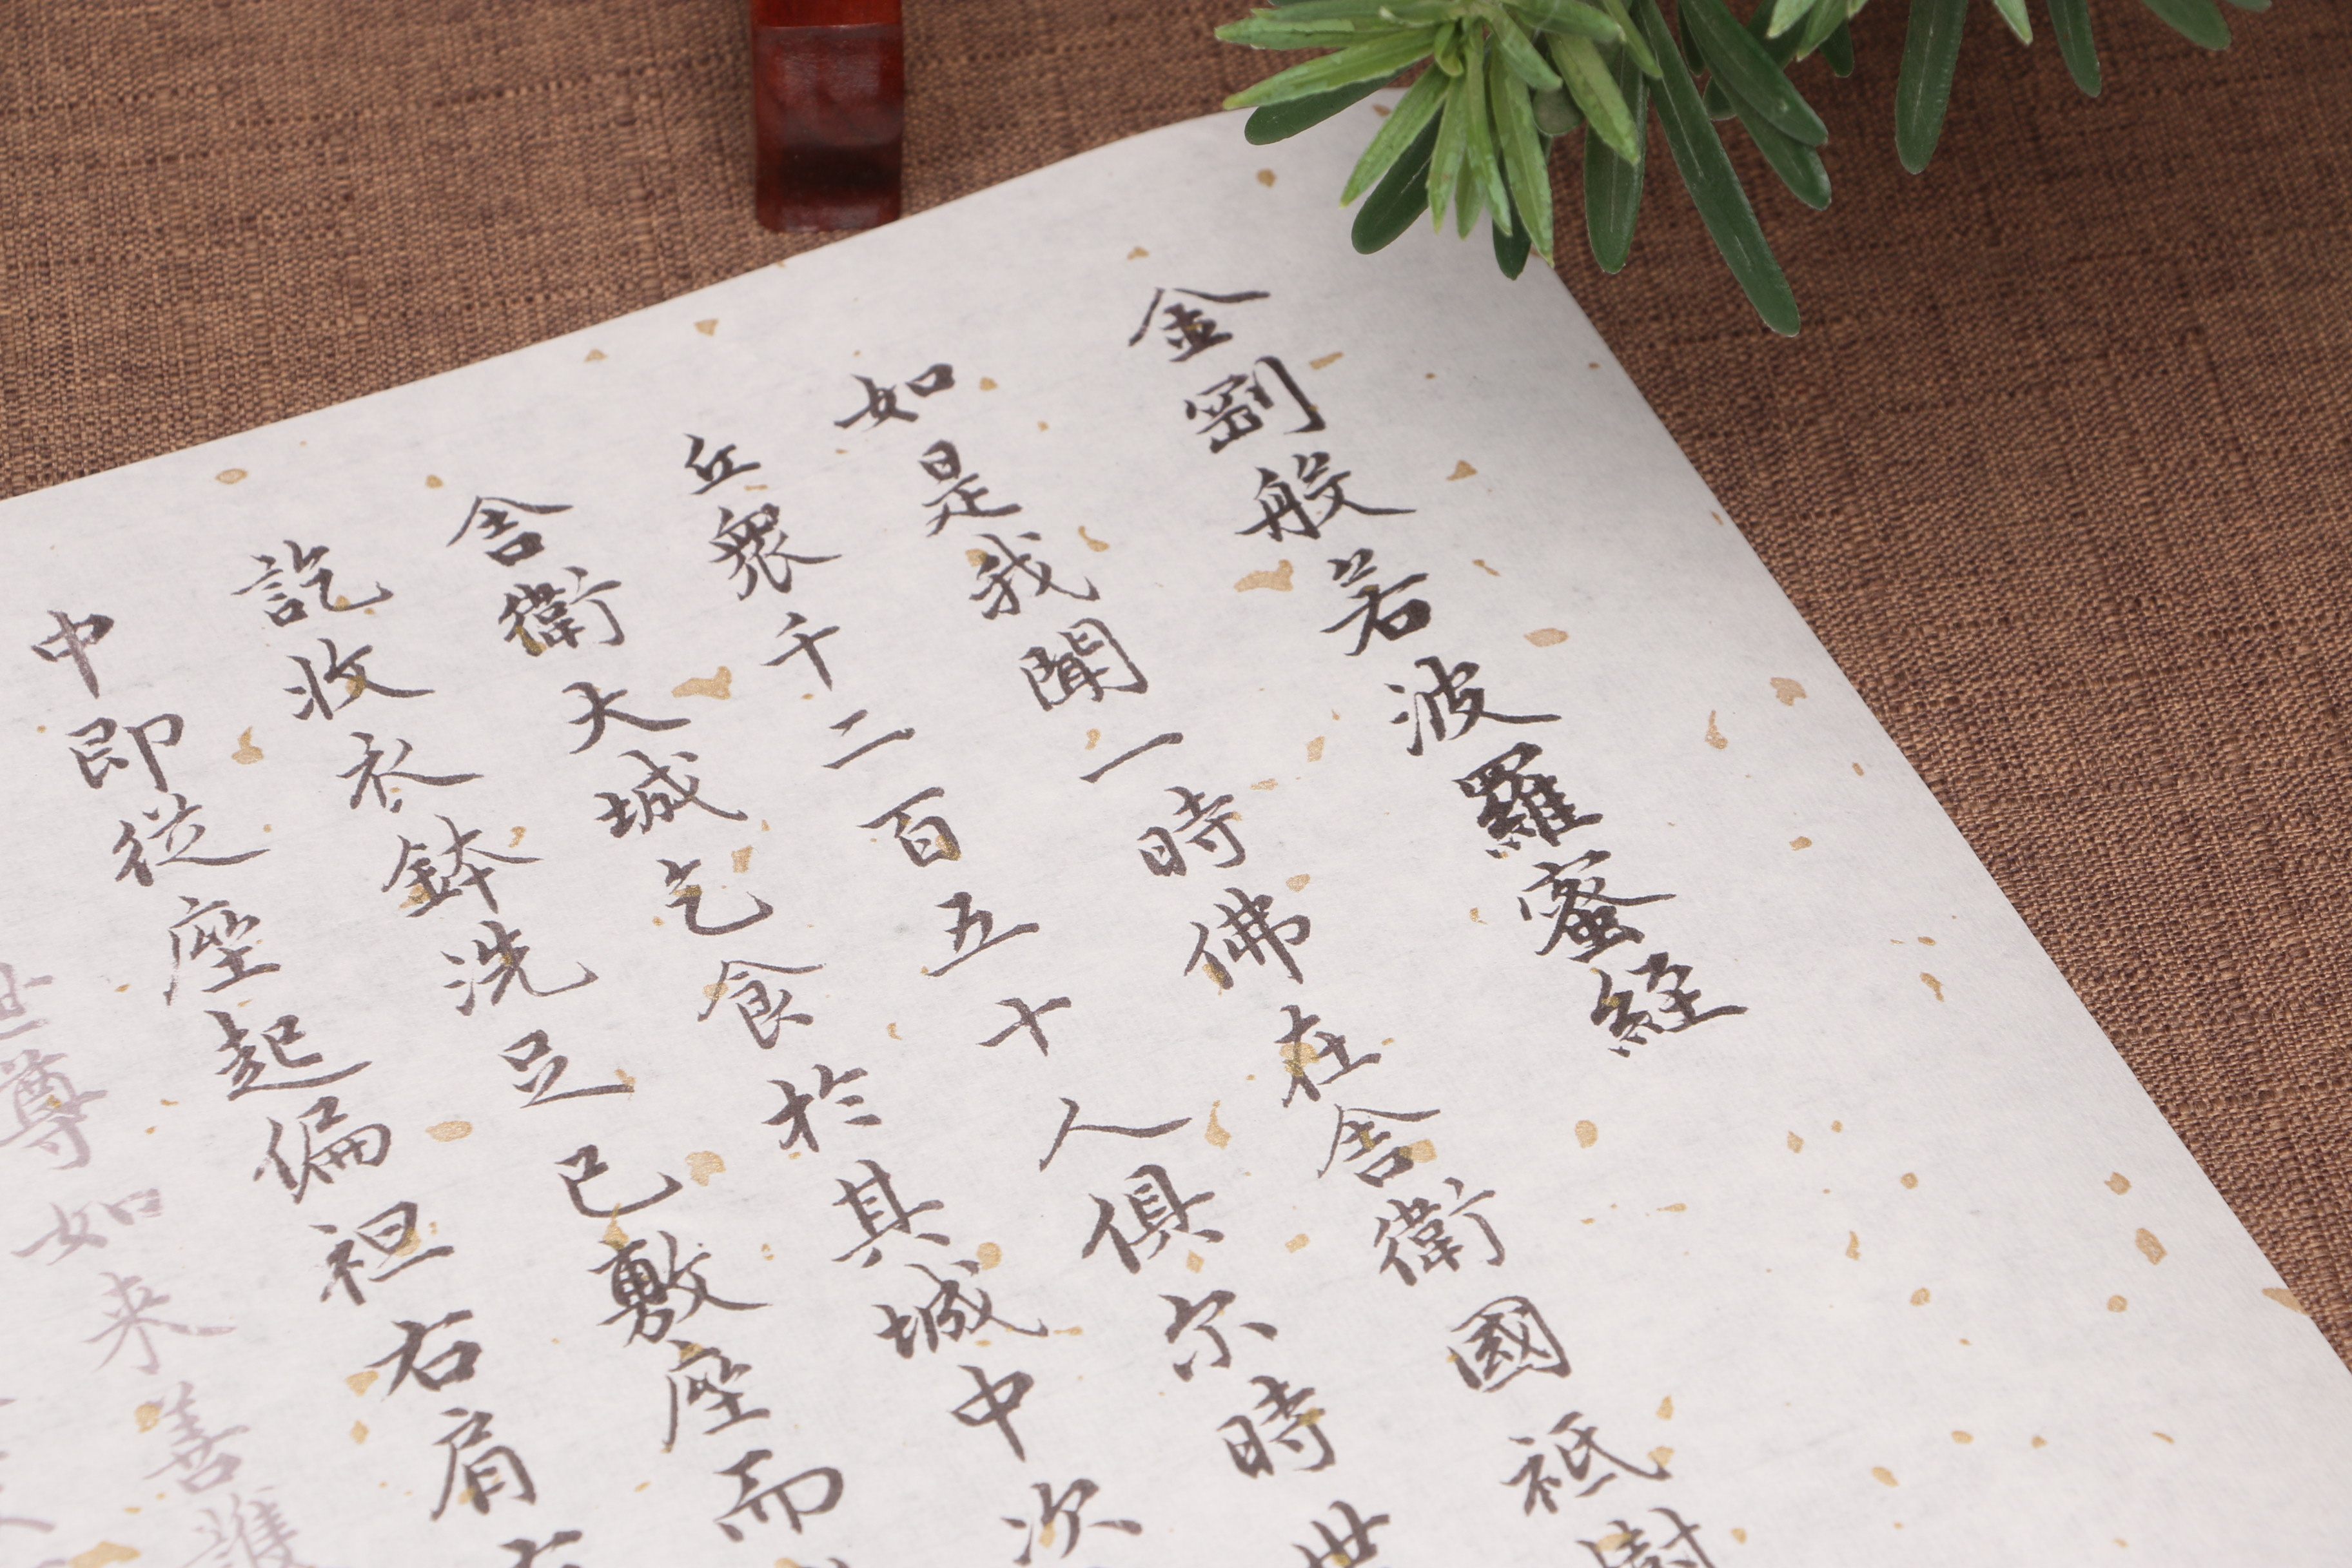 金剛般若波羅蜜經
如是我聞一時佛在舍衛國祇樹
丘衆千二百五十人俱尒時世
舍衛大城乞食於其城中次
訖收衣鉢洗足已敷座而
中即從座起偏袒右肩右
世尊如来善護